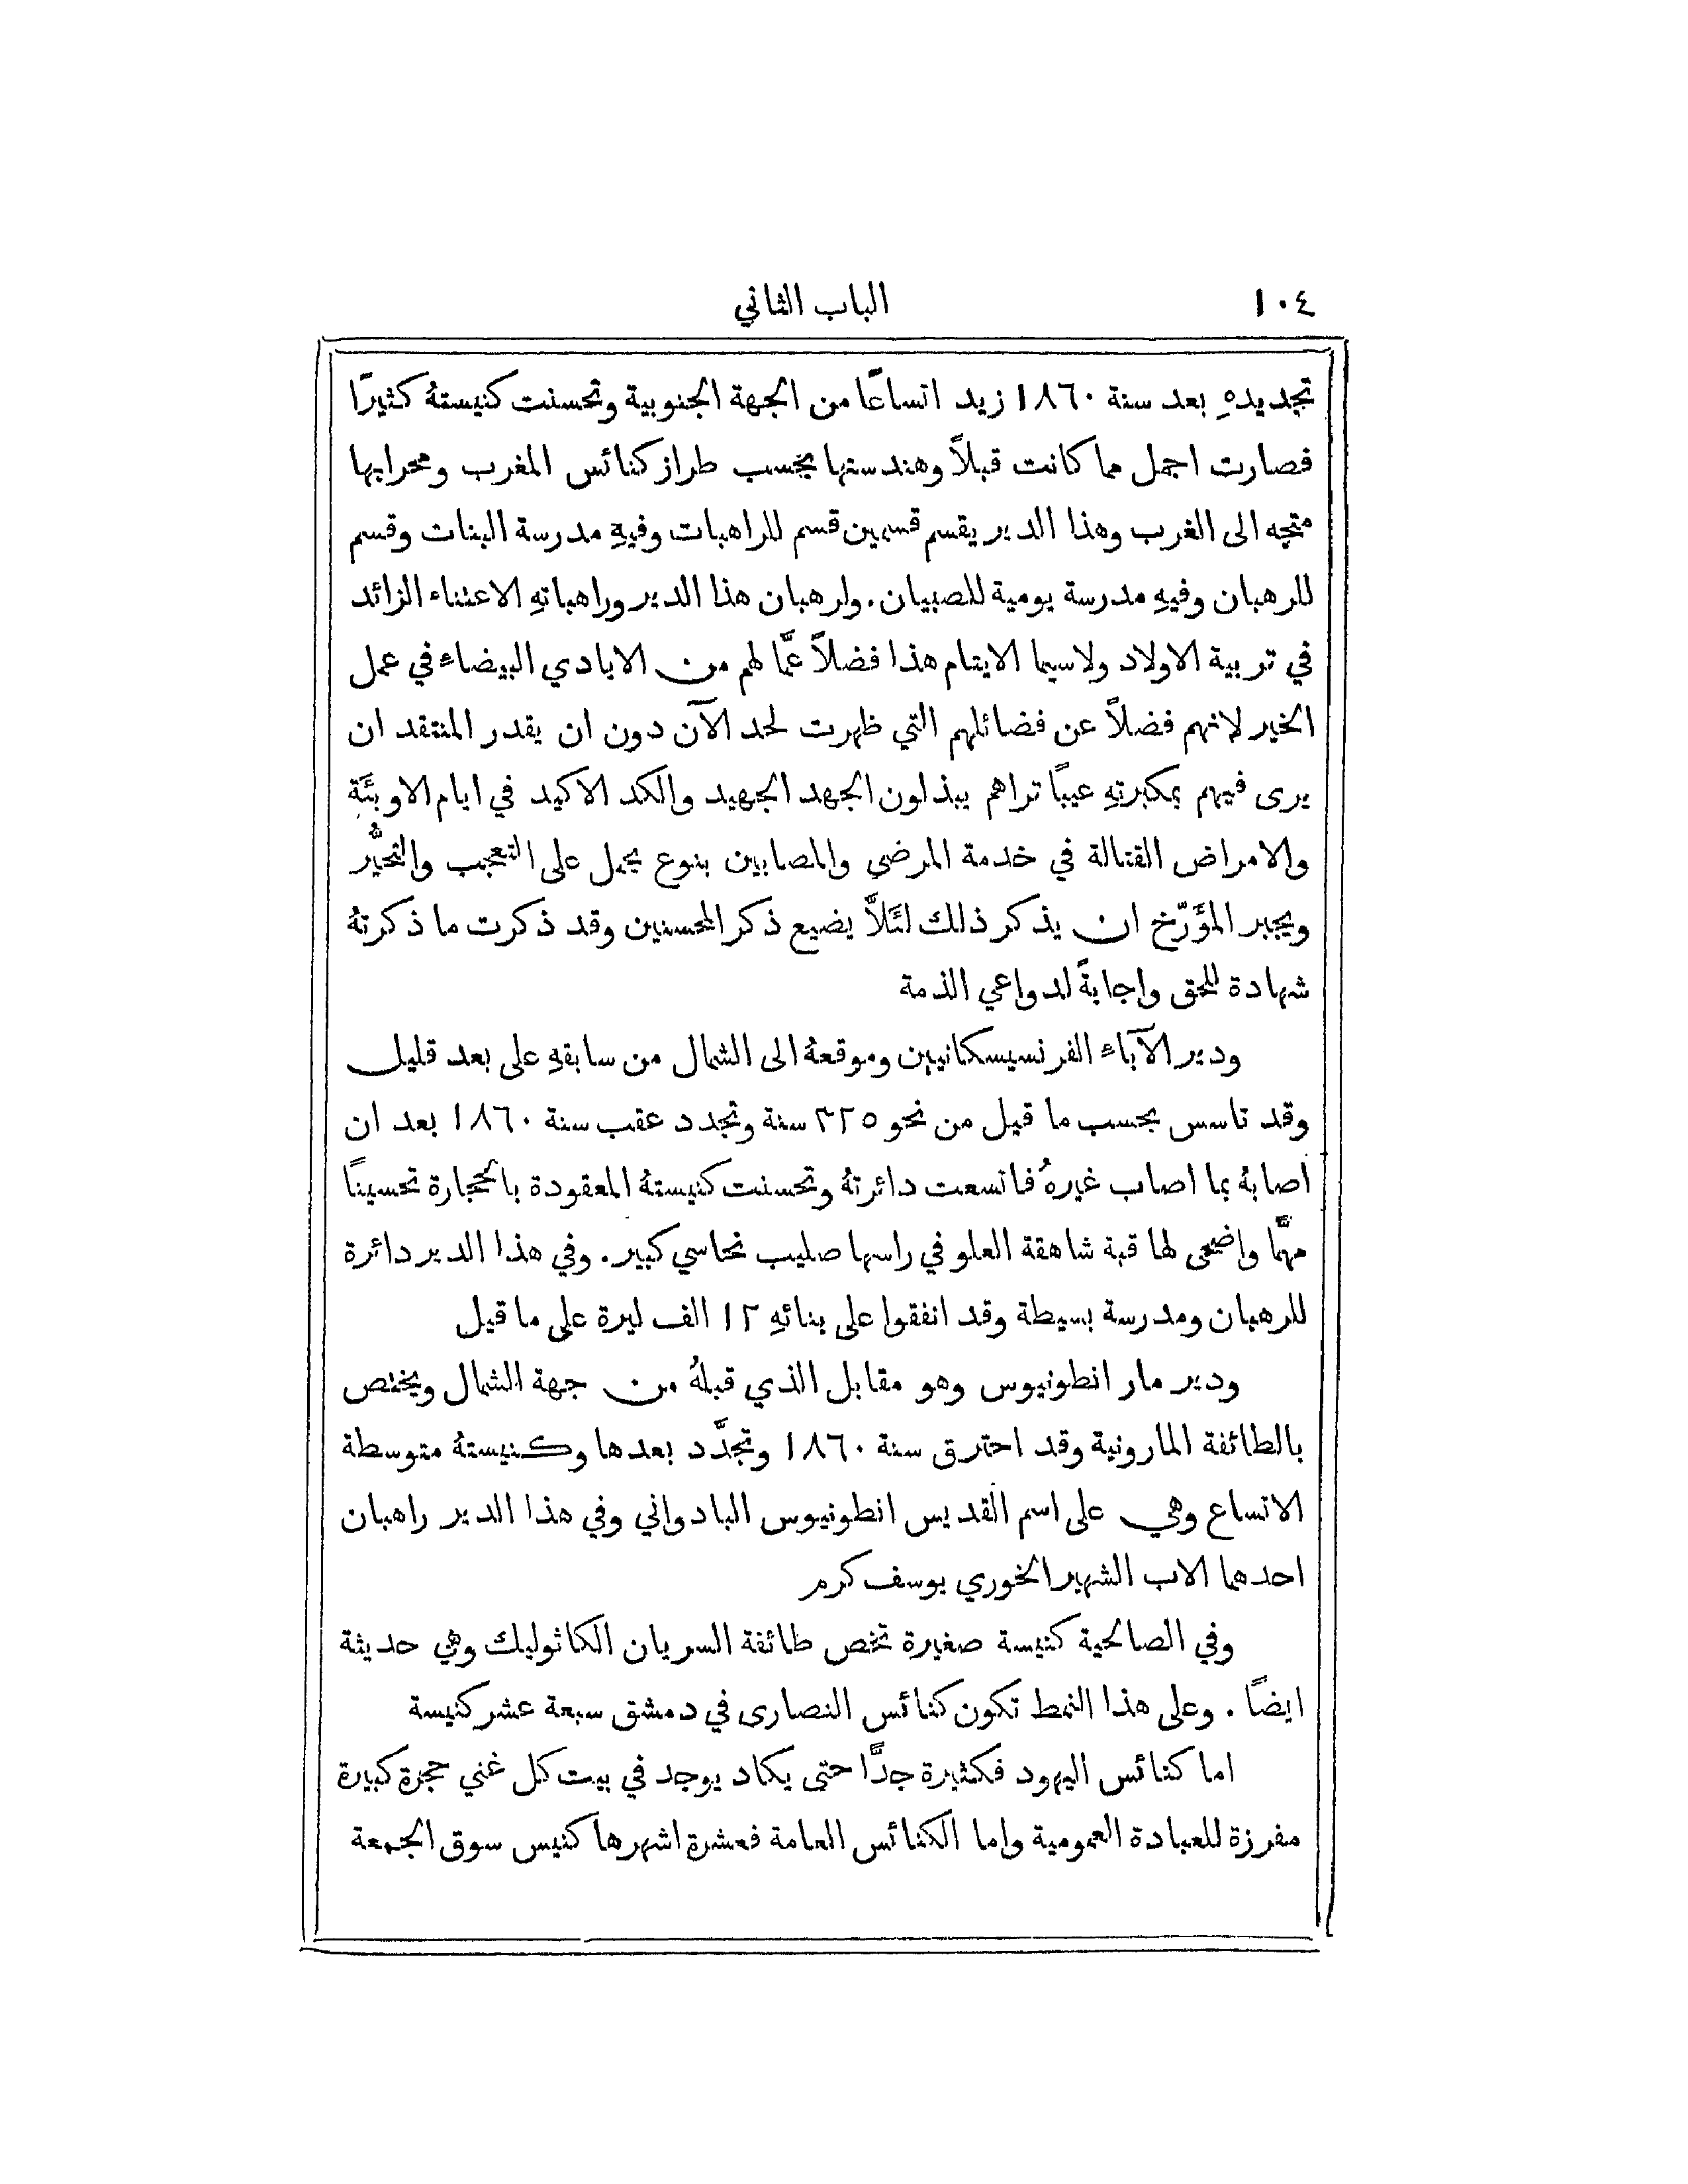 ١٠٤ الباب الثاني
تجديدهِ بعد سنة ١٨٦٠ زيد اتساعًا من الجهة الجنوبية وتحسنت كنيستهُ كثيرًا
فصارت اجمل مما كانت قبلاً وهندستها بحسب طراز كنائس المغرب ومحرابها
متجه الى الغرب وهذا الدير يقسم قسمين قسم للراهبات وفيهِ مدرسة البنات وقسم
للرهبان وفيهِ مدرسة يومية للصبيان. ولرهبان هذا الدير وراهباتهِ الاعتناء الزائد
في تربية الاولاد ولاسيما الايتام هذا فضلاً عمَّا لهم من الايادي البيضاء في عمل
الخير لانهم فضلاً عن فضائلهم التي ظهرت لحد الآن دون ان يقدر المنتقد ان
يرى فيهم بمكبرتهِ عيبًا تراهم يبذلون الجهد الجهيد والكد الاكيد في ايام الاوبئَة
والامراض القتالة في خدمة المرضى والمصابين بنوع يحمل على التعجب والتحيُّر
ويجبر المؤَرّخ ان يذكر ذلك لئَلاَّ يضيع ذكر المحسنين وقد ذكرت ما ذكرتهُ
شهادة للحق واجابةً لدواعي الذمة
ودير الآباء الفرنسيسكانيين وموقعهُ الى الشمال من سابقهِ على بعد قليل
وقد تاسس بحسب ما قيل من نحو ٢٢٥ سنة وتجدد عقب سنة ١٨٦٠ بعد ان
اصابهُ بما اصاب غيرهُ فاتسعت دائرتهُ وتحسنت كنيستهُ المعقودة بالحجارة تحسينًا
مهمًّا واضحى لها قبة شاهقة العلو في راسها صليب نحاسي كبير. وفي هذا الدير دائرة
للرهبان ومدرسة بسيطة وقد انفقوا على بنائهِ ١٢ الف ليرة على ما قيل
ودير مار انطونيوس وهو مقابل الذي قبلهُ من جهة الشمال ويختص
بالطائفة المارونية وقد احترق سنة ١٨٦٠ وتجدَّد بعدها وكنيستهُ متوسطة
الاتساع وهي على اسم القديس انطونيوس البادواني وفي هذا الدير راهبان
احدهما الاب الشهير الخوري يوسف كرم
وفي الصالحية كنيسة صغيرة تخص طائفة السريان الكاثوليك وهي حديثة
ايضًا. وعلى هذا النمط تكون كنائس النصارى في دمشق سبعة عشر كنيسة
اما كنائس اليهود فكثيرة جدًّا حتى يكاد يوجد في بيت كل غني حجرة كبيرة
مفرزة للعبادة العمومية واما الكنائس العامة فعشرة اشهرها كنيس سوق الجمعة